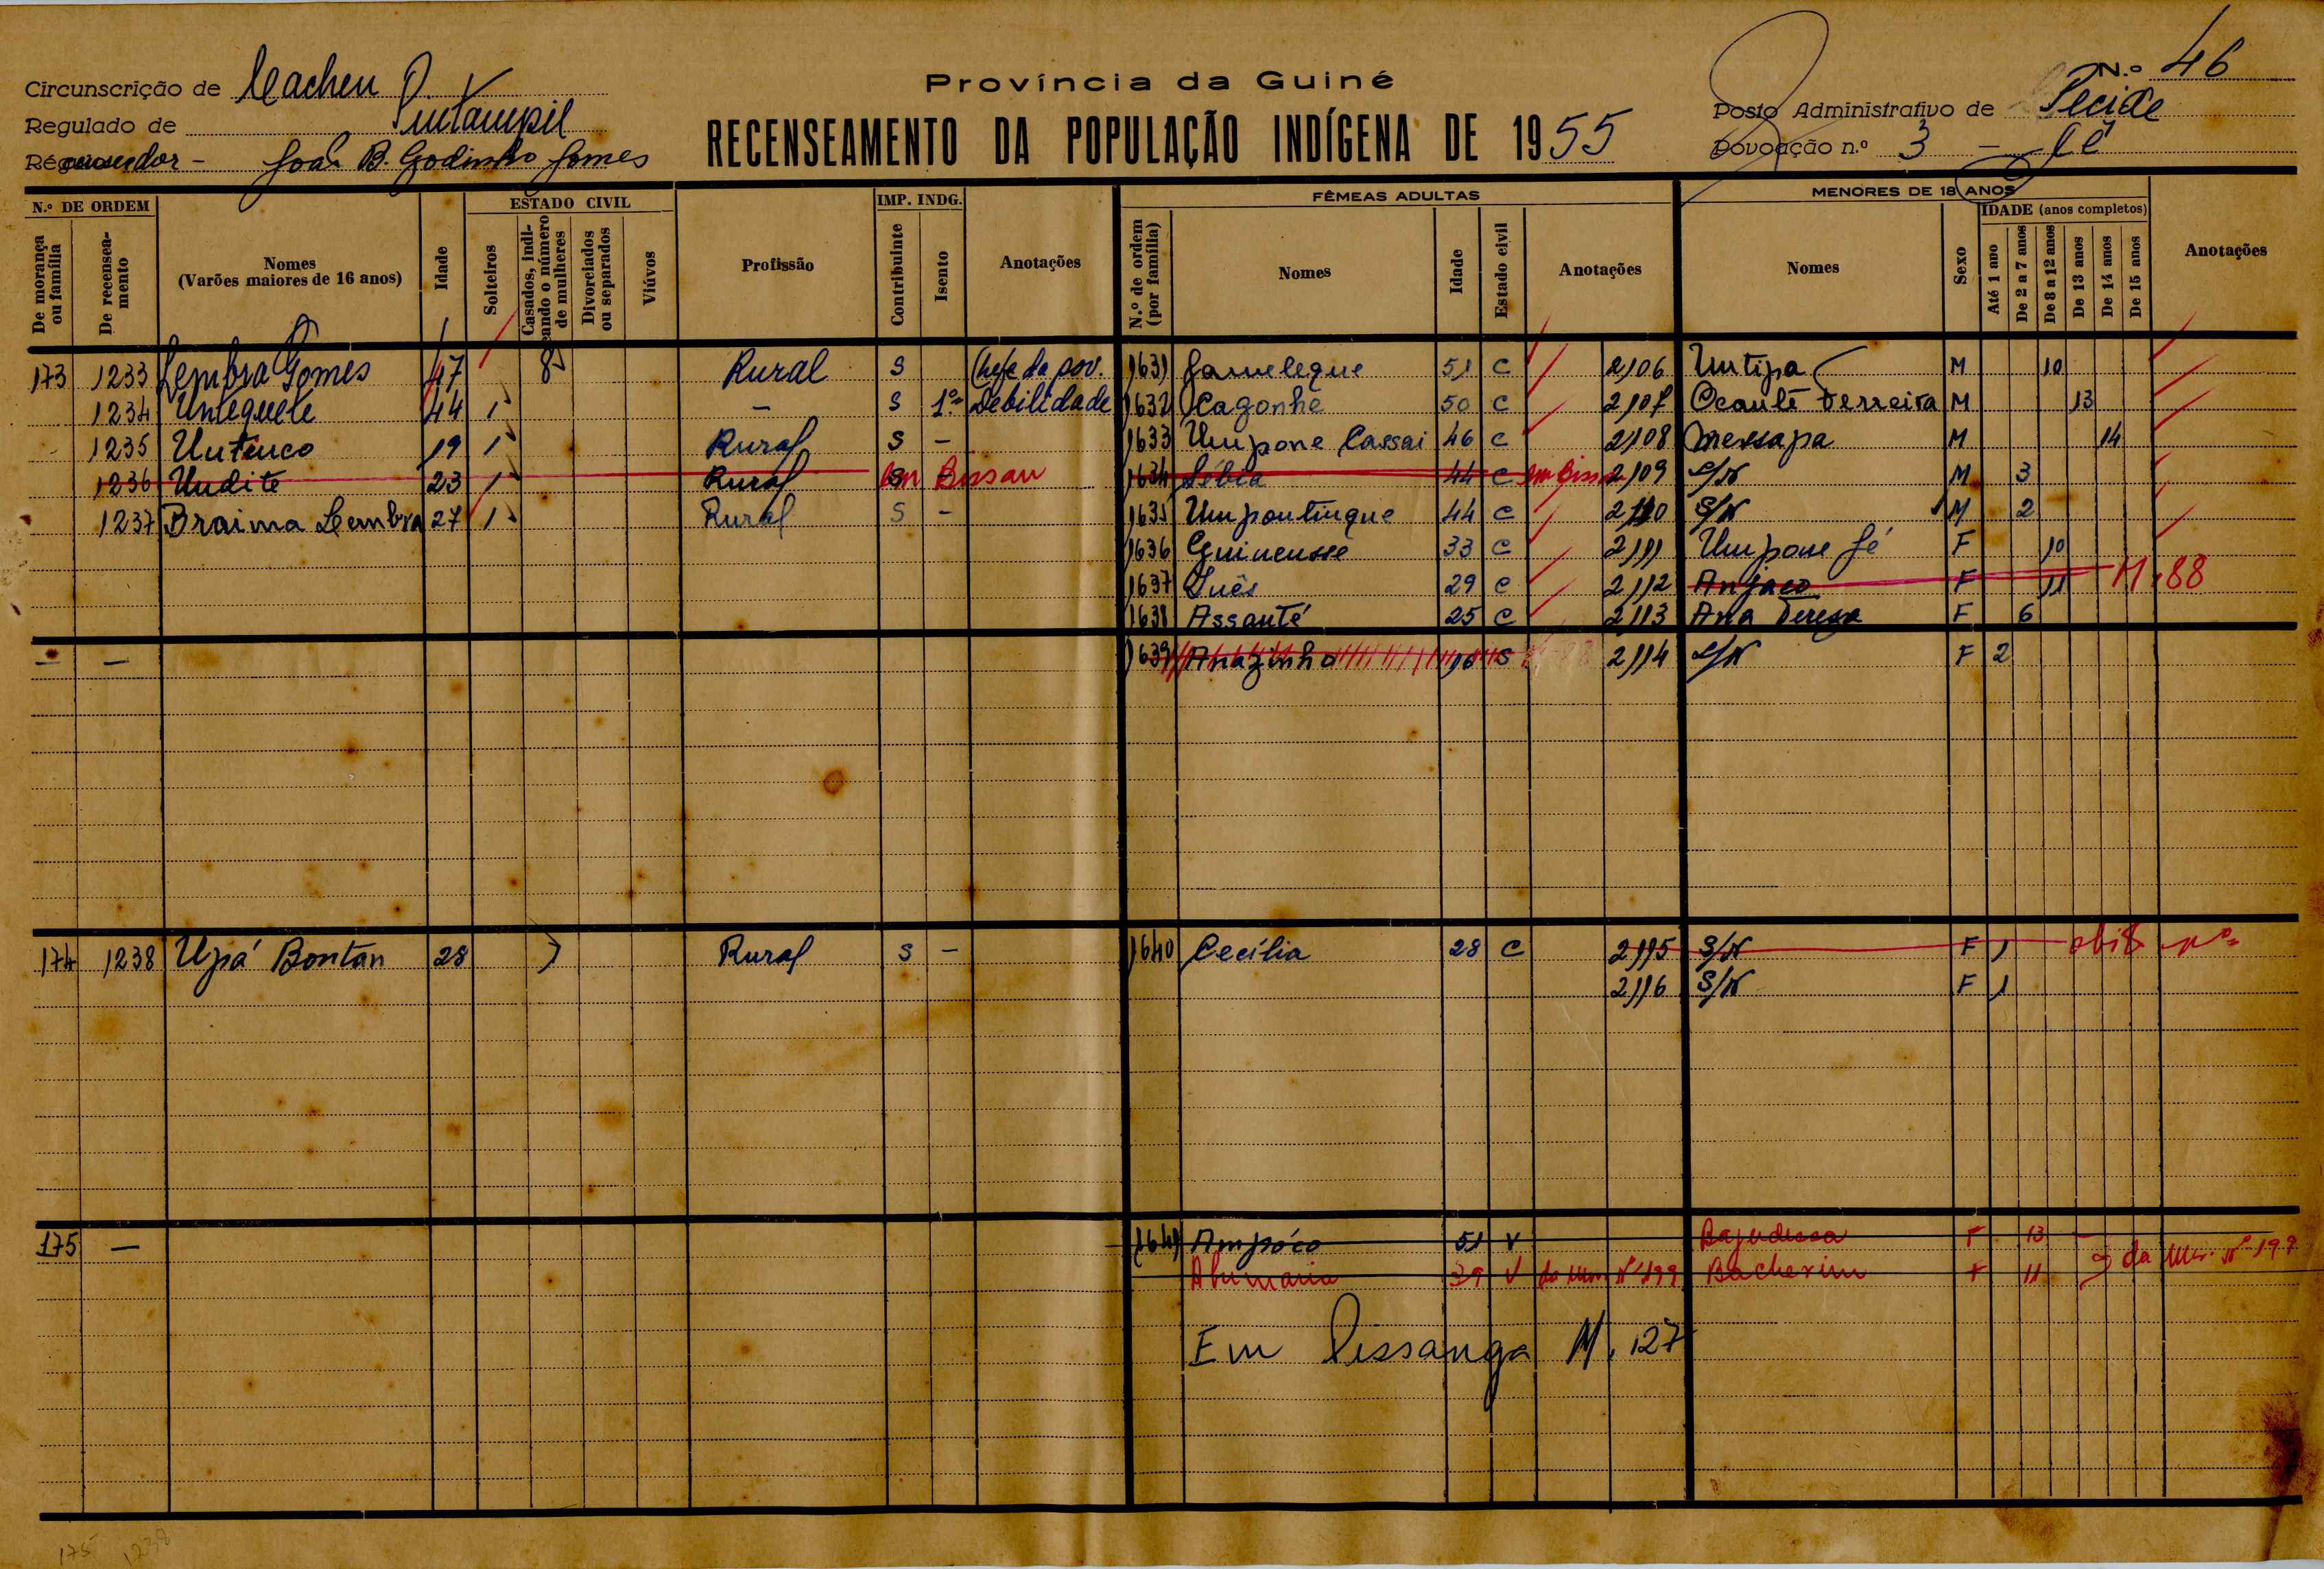 Província da Guiné
N.º 46
Circunscrição de Cacheu
Posto Administrativo de Pecixe
Regulado de Pintampil
RECENSEAMENTO DA POPULAÇÃO INDÍGENA DE 1955
Povoação n.º 3 -
João B. Godinho Gomes
N.º DE ORDEM
ESTADO CIVIL
IMP. INDG.
FÊMEAS ADULTAS
MENORES DE 18 ANOS
IDADE (anos completos)
De morança ou família
De recenseamento
Nomes (Varões maiores de 16 anos)
Idade
Solteiros
Casados, indicando o número de mulheres
Divorciados ou separados
Viúvos
Profissão
Contribuinte
Isento
Anotações
N.º de ordem (por família)
Nomes
Idade
Estado civil
Anotações
Nomes
Sexo
Até 1 ano
De 2 a 7 anos
De 8 a 12 anos
De 13 anos
De 14 anos
De 15 anos
Anotações
173 1233 Lembra Gomes 47 8 Rural S Chefe da pov. 1631 51 C 2106 Untipa M 10
1234 Untequete 44 1 - S Debilidade 1632 Cagonhe 50 C 2107 Ocante Ferreira M 13
1235 19 1 Rural S - 1633 Umpone Cassai 46 C 2108 Messapa M 14
1236 Undite 23 1 Rural S Em Bissau 1634 44 C 2109 S/N M 3
1237 Braima Lembra 27 1 Rural S - 1635 Umpontinque 44 C 2110 S/N M 2
1636 Guineusse 33 C 2111 Umpone F 10
1637 Inês 29 C 2112 Anjaco F 11 M. 88
1638 Assanté 25 C 2113 Ana Teresa F 6
- - 1639 Anazinha 16 S 2114 S/N F 2
174 1238 Upá Bontan 28 1 Rural S - 1640 Cecília 28 C 2115 S/N F 1
2116 S/N F 1
175 - 1641 Ampóco 51 V F 13
39 V da Mor. Nº 199 Bacherim F 11 da Mor. Nº 199
Em Pissanga M. 127
175 1238